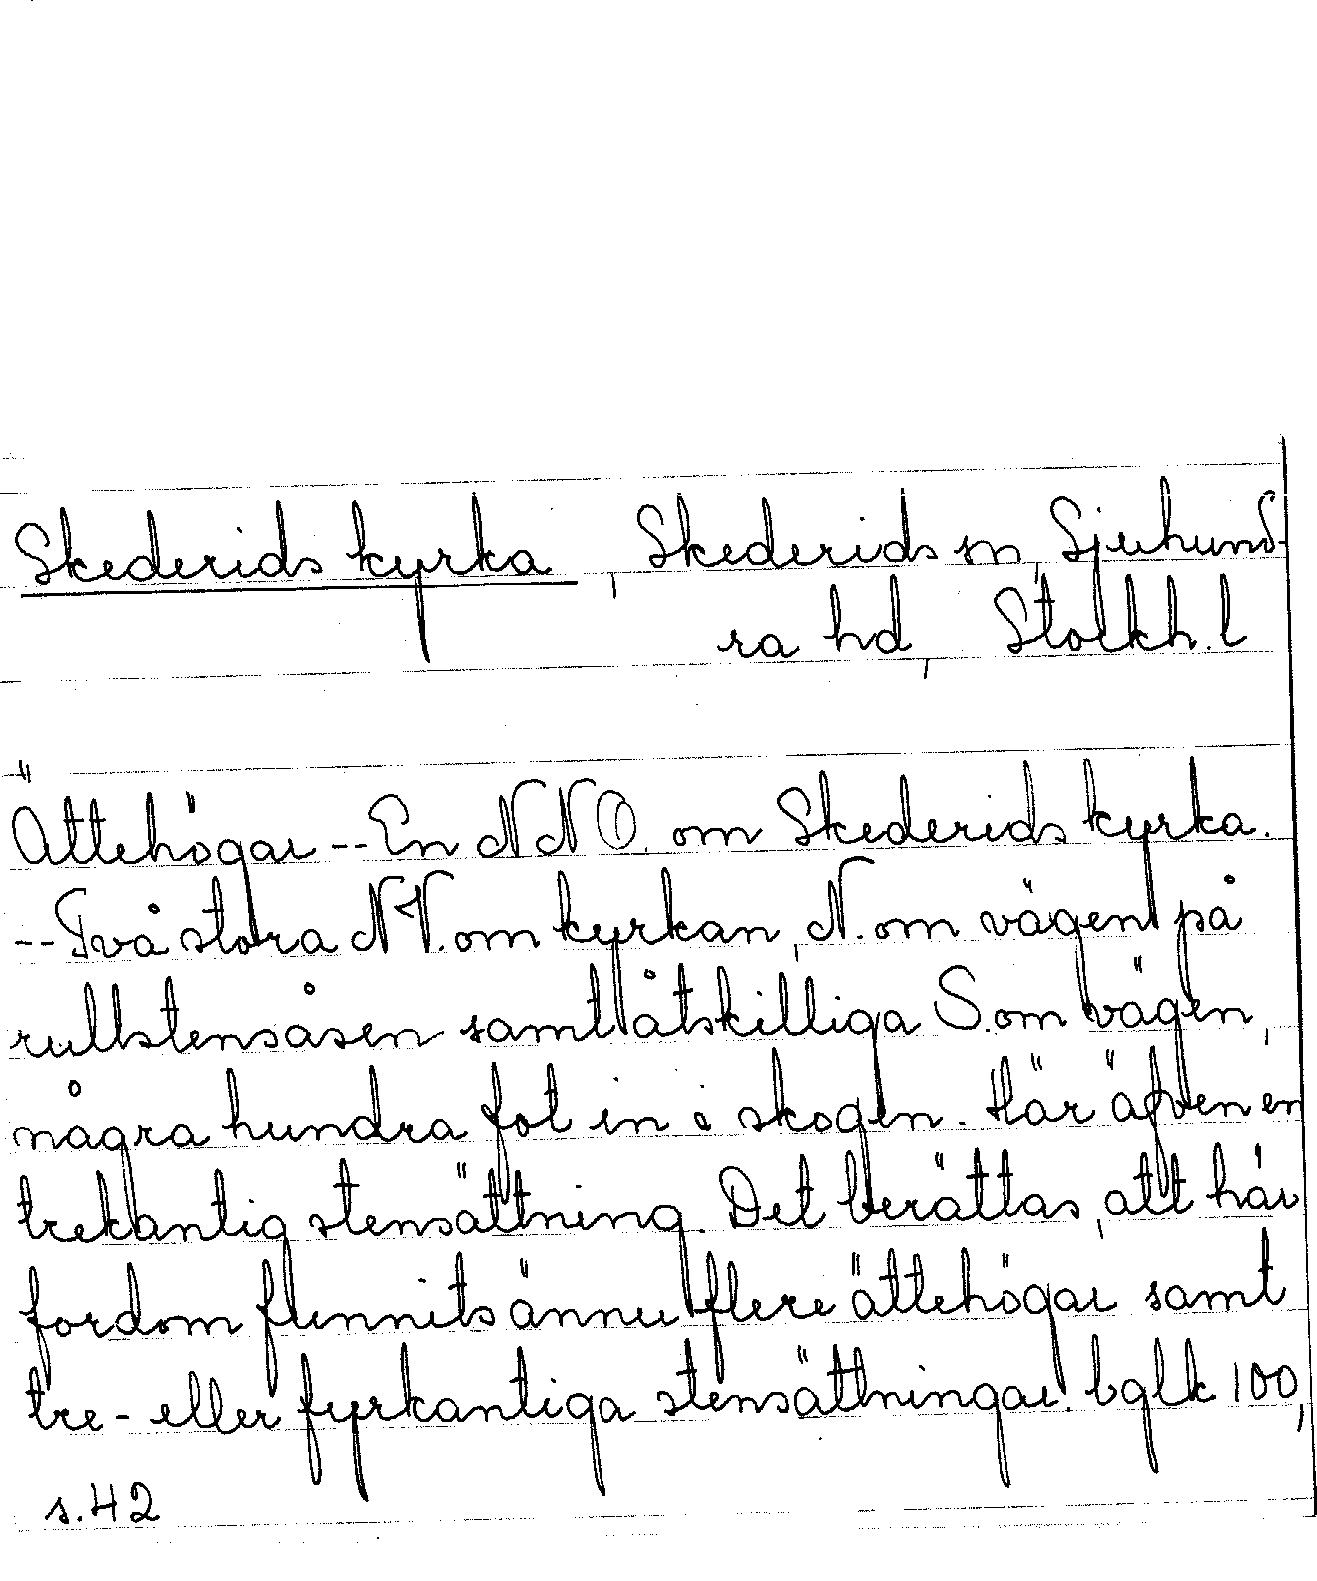 Skederids kyrka, Skederids sn, Sjuhund-
ra hd, Stolkh. l
Ättehögar -- En NNO. om Skederids kyrka.
-- Två stora NV. om kyrkan, N. om vägen på
rullstensåsen samt åtskilliga S. om vägen,
några hundra fot in i skogen. Här äfven en
trekantig stensättning. Det berättas, att här
fordom funnits ännu flere ättehögar samt
tre- eller fyrkantiga stensättningar. bglk 100,
s. 42